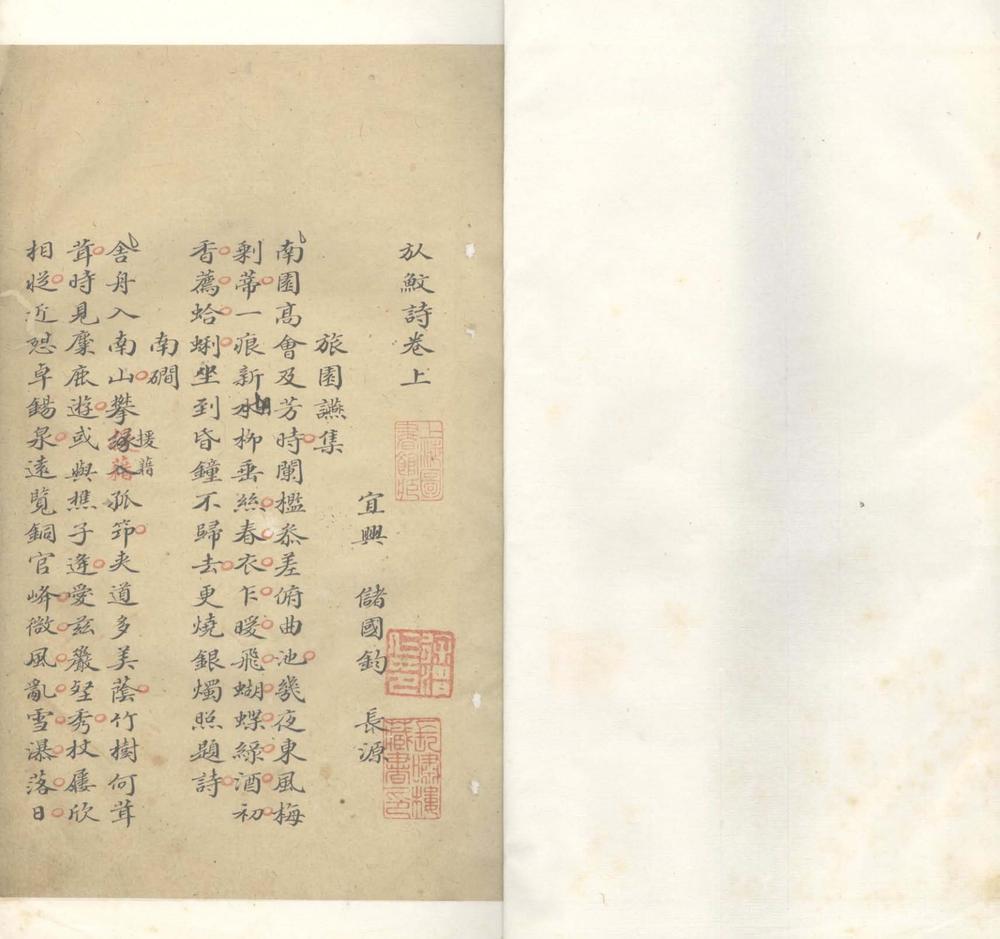 放鮫詩卷上
宜興 儲國鈞 長源
旅園讌集
南園高會及芳時闌檻叅差俯曲池幾夜東風梅
剩蒂一痕新水柳垂絲春衣乍暖飛蝴蝶綠酒初
香薦蛤蜊坐到昏鐘不歸去更燒銀燭照題詩
南磵
舍舟入南山攀緣入孤笻夾道多美蔭竹樹何茸
援藉
茸時見麋鹿遊或與樵子逢愛茲巖壑秀杖屨欣
相從近憇卓錫泉遠覽銅官峰微風亂雪瀑落日
上海圖書館藏
長嘯樓藏書印